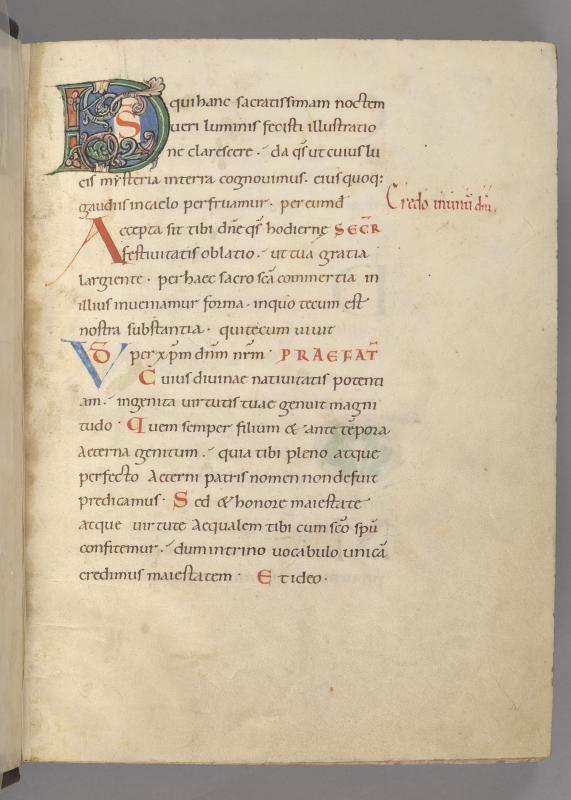 DS qui hanc sacratissimam noctem
ueri luminis fecisti illustratio
ne clarescere. da qs ut cuius lu
cis mysteria in terra cognouimus. eius quoq:
gaudiis in caelo perfruamur. per eund
Credo in unū dm.
Accepta sit tibi dne qs hodierne SECR
festiuitatis oblatio. ut tua gratia
largiente. per haec sacro sca commertia in
illius inueniamur forma. in quo tecum est
nostra substantia. qui tecum uiuit
VD per xpm dnm nrm. PRAEFAT
Cuius diuinae natiuitatis potenti
am. ingenita uirtutis tuae genuit magni
tudo. Quem semper filium & ante tēpora
aeterna genitum. quia tibi pleno atque
perfecto aeterni patris nomen non defuit
predicamus. Sed & honore maiestate
atque uirtute aequalem tibi cum sco spu
confitemur. dum in trino uocabulo unicā
credimus maiestatem. Et ideo.